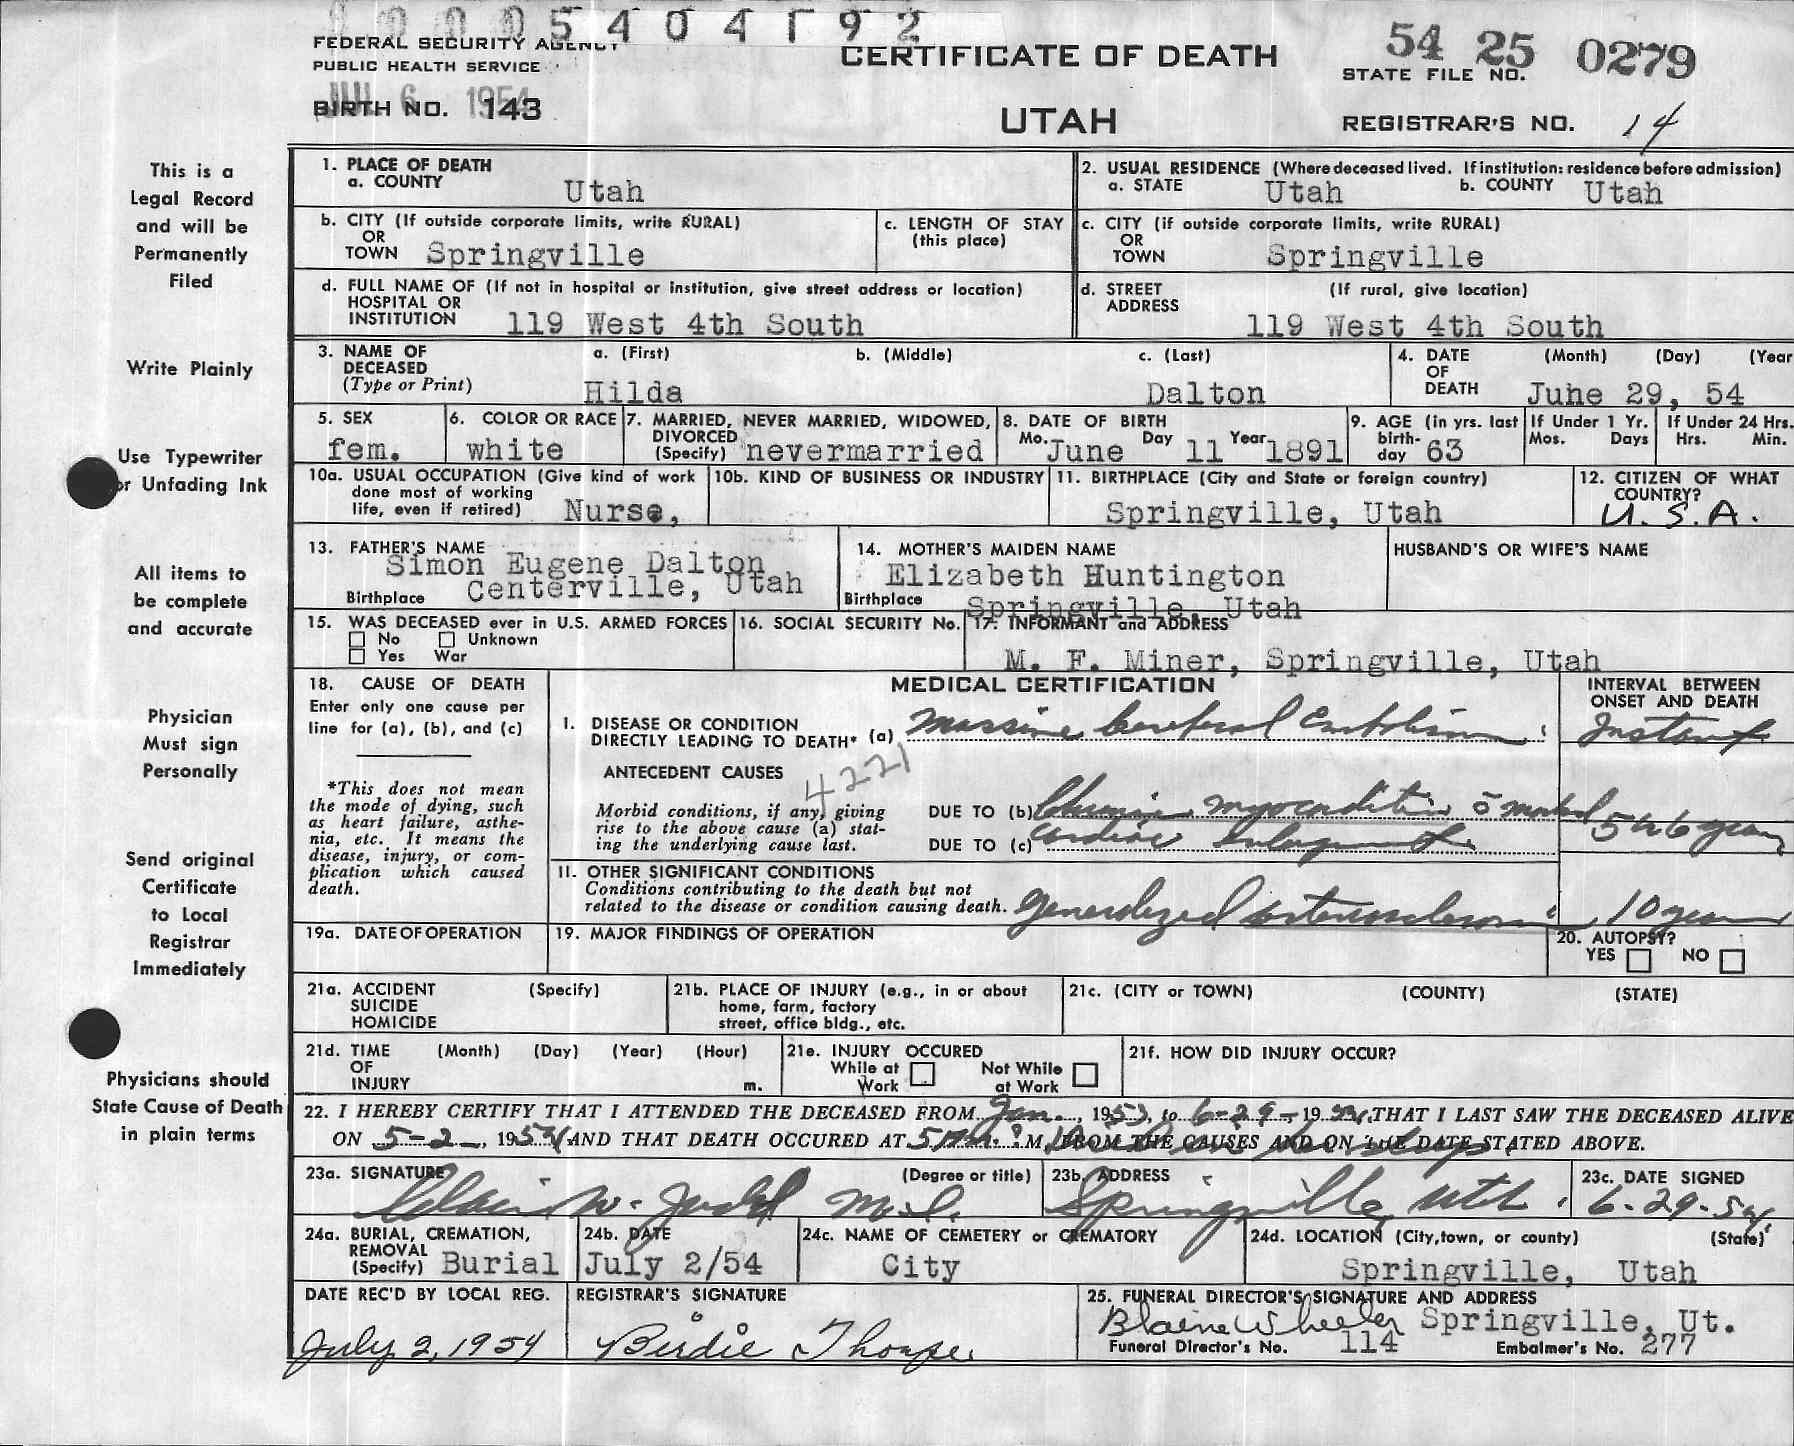 0005404192
FEDERAL SECURITY AGENCY
PUBLIC HEALTH SERVICE
CERTIFICATE OF DEATH
54 25 0279
STATE FILE NO.
JUL 6 1954
BIRTH NO. 143
UTAH
REGISTRAR'S NO. 14
This is a
Legal Record
and will be
Permanently
Filed
Write Plainly
Use Typewriter
or Unfading Ink
All items to
be complete
and accurate
Physician
Must sign
Personally
Send original
Certificate
to Local
Registrar
Immediately
Physicians should
State Cause of Death
in plain terms
1. PLACE OF DEATH
a. COUNTY Utah
2. USUAL RESIDENCE (Where deceased lived. If institution: residence before admission)
a. STATE Utah b. COUNTY Utah
b. CITY (If outside corporate limits, write RURAL)
OR
TOWN Springville
c. LENGTH OF STAY
(this place)
c. CITY (if outside corporate limits, write RURAL)
OR
TOWN Springville
d. FULL NAME OF (If not in hospital or institution, give street address or location)
HOSPITAL OR
INSTITUTION 119 West 4th South
d. STREET (If rural, give location)
ADDRESS
119 West 4th South
3. NAME OF
DECEASED
(Type or Print)
a. (First) b. (Middle) c. (Last)
Hilda Dalton
4. DATE (Month) (Day) (Year
OF
DEATH June 29, 54
5. SEX
fem.
6. COLOR OR RACE
white
7. MARRIED, NEVER MARRIED, WIDOWED,
DIVORCED
(Specify) nevermarried
8. DATE OF BIRTH
Mo. June Day 11 Year 1891
9. AGE (in yrs. last
birth-
day 63
If Under 1 Yr.
Mos. Days
If Under 24 Hrs.
Hrs. Min.
10a. USUAL OCCUPATION (Give kind of work
done most of working
life, even if retired) Nurse,
10b. KIND OF BUSINESS OR INDUSTRY
11. BIRTHPLACE (City and State or foreign country)
Springville, Utah
12. CITIZEN OF WHAT
COUNTRY?
U.S.A.
13. FATHER'S NAME
Simon Eugene Dalton
Birthplace Centerville, Utah
14. MOTHER'S MAIDEN NAME
Elizabeth Huntington
Birthplace Springville, Utah
HUSBAND'S OR WIFE'S NAME
15. WAS DECEASED ever in U.S. ARMED FORCES
No Unknown
Yes War
16. SOCIAL SECURITY No.
17. INFORMANT and ADDRESS
M. F. Miner, Springville, Utah
18. CAUSE OF DEATH
Enter only one cause per
line for (a), (b), and (c)
*This does not mean
the mode of dying, such
as heart failure, asthe-
nia, etc. It means the
disease, injury, or com-
plication which caused
death.
MEDICAL CERTIFICATION
INTERVAL BETWEEN
ONSET AND DEATH
I. DISEASE OR CONDITION
DIRECTLY LEADING TO DEATH* (a) Massive Cerebral Embolism Instant
ANTECEDENT CAUSES
4221
Morbid conditions, if any, giving
rise to the above cause (a) stat-
ing the underlying cause last.
DUE TO (b) Chronic myocarditis c̄ marked
DUE TO (c) Cardiac enlargement
5 to 6 years
11. OTHER SIGNIFICANT CONDITIONS
Conditions contributing to the death but not
related to the disease or condition causing death. Generalized arteriosclerosis 10 years
19a. DATE OF OPERATION
19. MAJOR FINDINGS OF OPERATION
20. AUTOPSY?
YES NO
21a. ACCIDENT (Specify)
SUICIDE
HOMICIDE
21b. PLACE OF INJURY (e.g., in or about
home, farm, factory
street, office bldg., etc.
21c. (CITY or TOWN) (COUNTY) (STATE)
21d. TIME (Month) (Day) (Year) (Hour)
OF
INJURY m.
21e. INJURY OCCURED
While at Work Not While at Work
21f. HOW DID INJURY OCCUR?
22. I HEREBY CERTIFY THAT I ATTENDED THE DECEASED FROM Jan., 1953, to 6-29-, 1954, THAT I LAST SAW THE DECEASED ALIVE
ON 5-2, 1954 AND THAT DEATH OCCURED AT 5 M, FROM THE CAUSES AND ON THE DATE STATED ABOVE.
23a. SIGNATURE (Degree or title)
W. Judd M.D.
23b. ADDRESS
Springville, Utah.
23c. DATE SIGNED
6-29-54
24a. BURIAL, CREMATION,
REMOVAL
(Specify) Burial
24b. DATE
July 2/54
24c. NAME OF CEMETERY or CREMATORY
City
24d. LOCATION (City, town, or county) (State)
Springville, Utah
DATE REC'D BY LOCAL REG.
July 2, 1954
REGISTRAR'S SIGNATURE
Birdie Thorpe
25. FUNERAL DIRECTOR'S SIGNATURE AND ADDRESS
Blaine Wheeler Springville, Ut.
Funeral Director's No. 114 Embalmer's No. 277